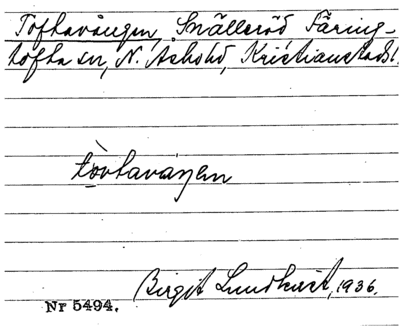 Toftavången, Snälleröd Färing-
tofta sn, N. Åsbohd, Kristianstads l.
tòvtavaŋen
Birgit Lundkvist, 1936.
Nr 5494.